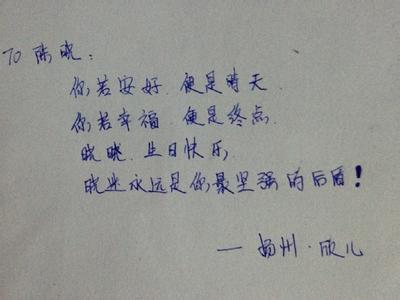 TO 陈晓:
你若安好,便是晴天.
你若幸福,便是终点.
晓晓.生日快乐,
晓迷永远是你最坚强的后盾!
— 扬州·欣儿